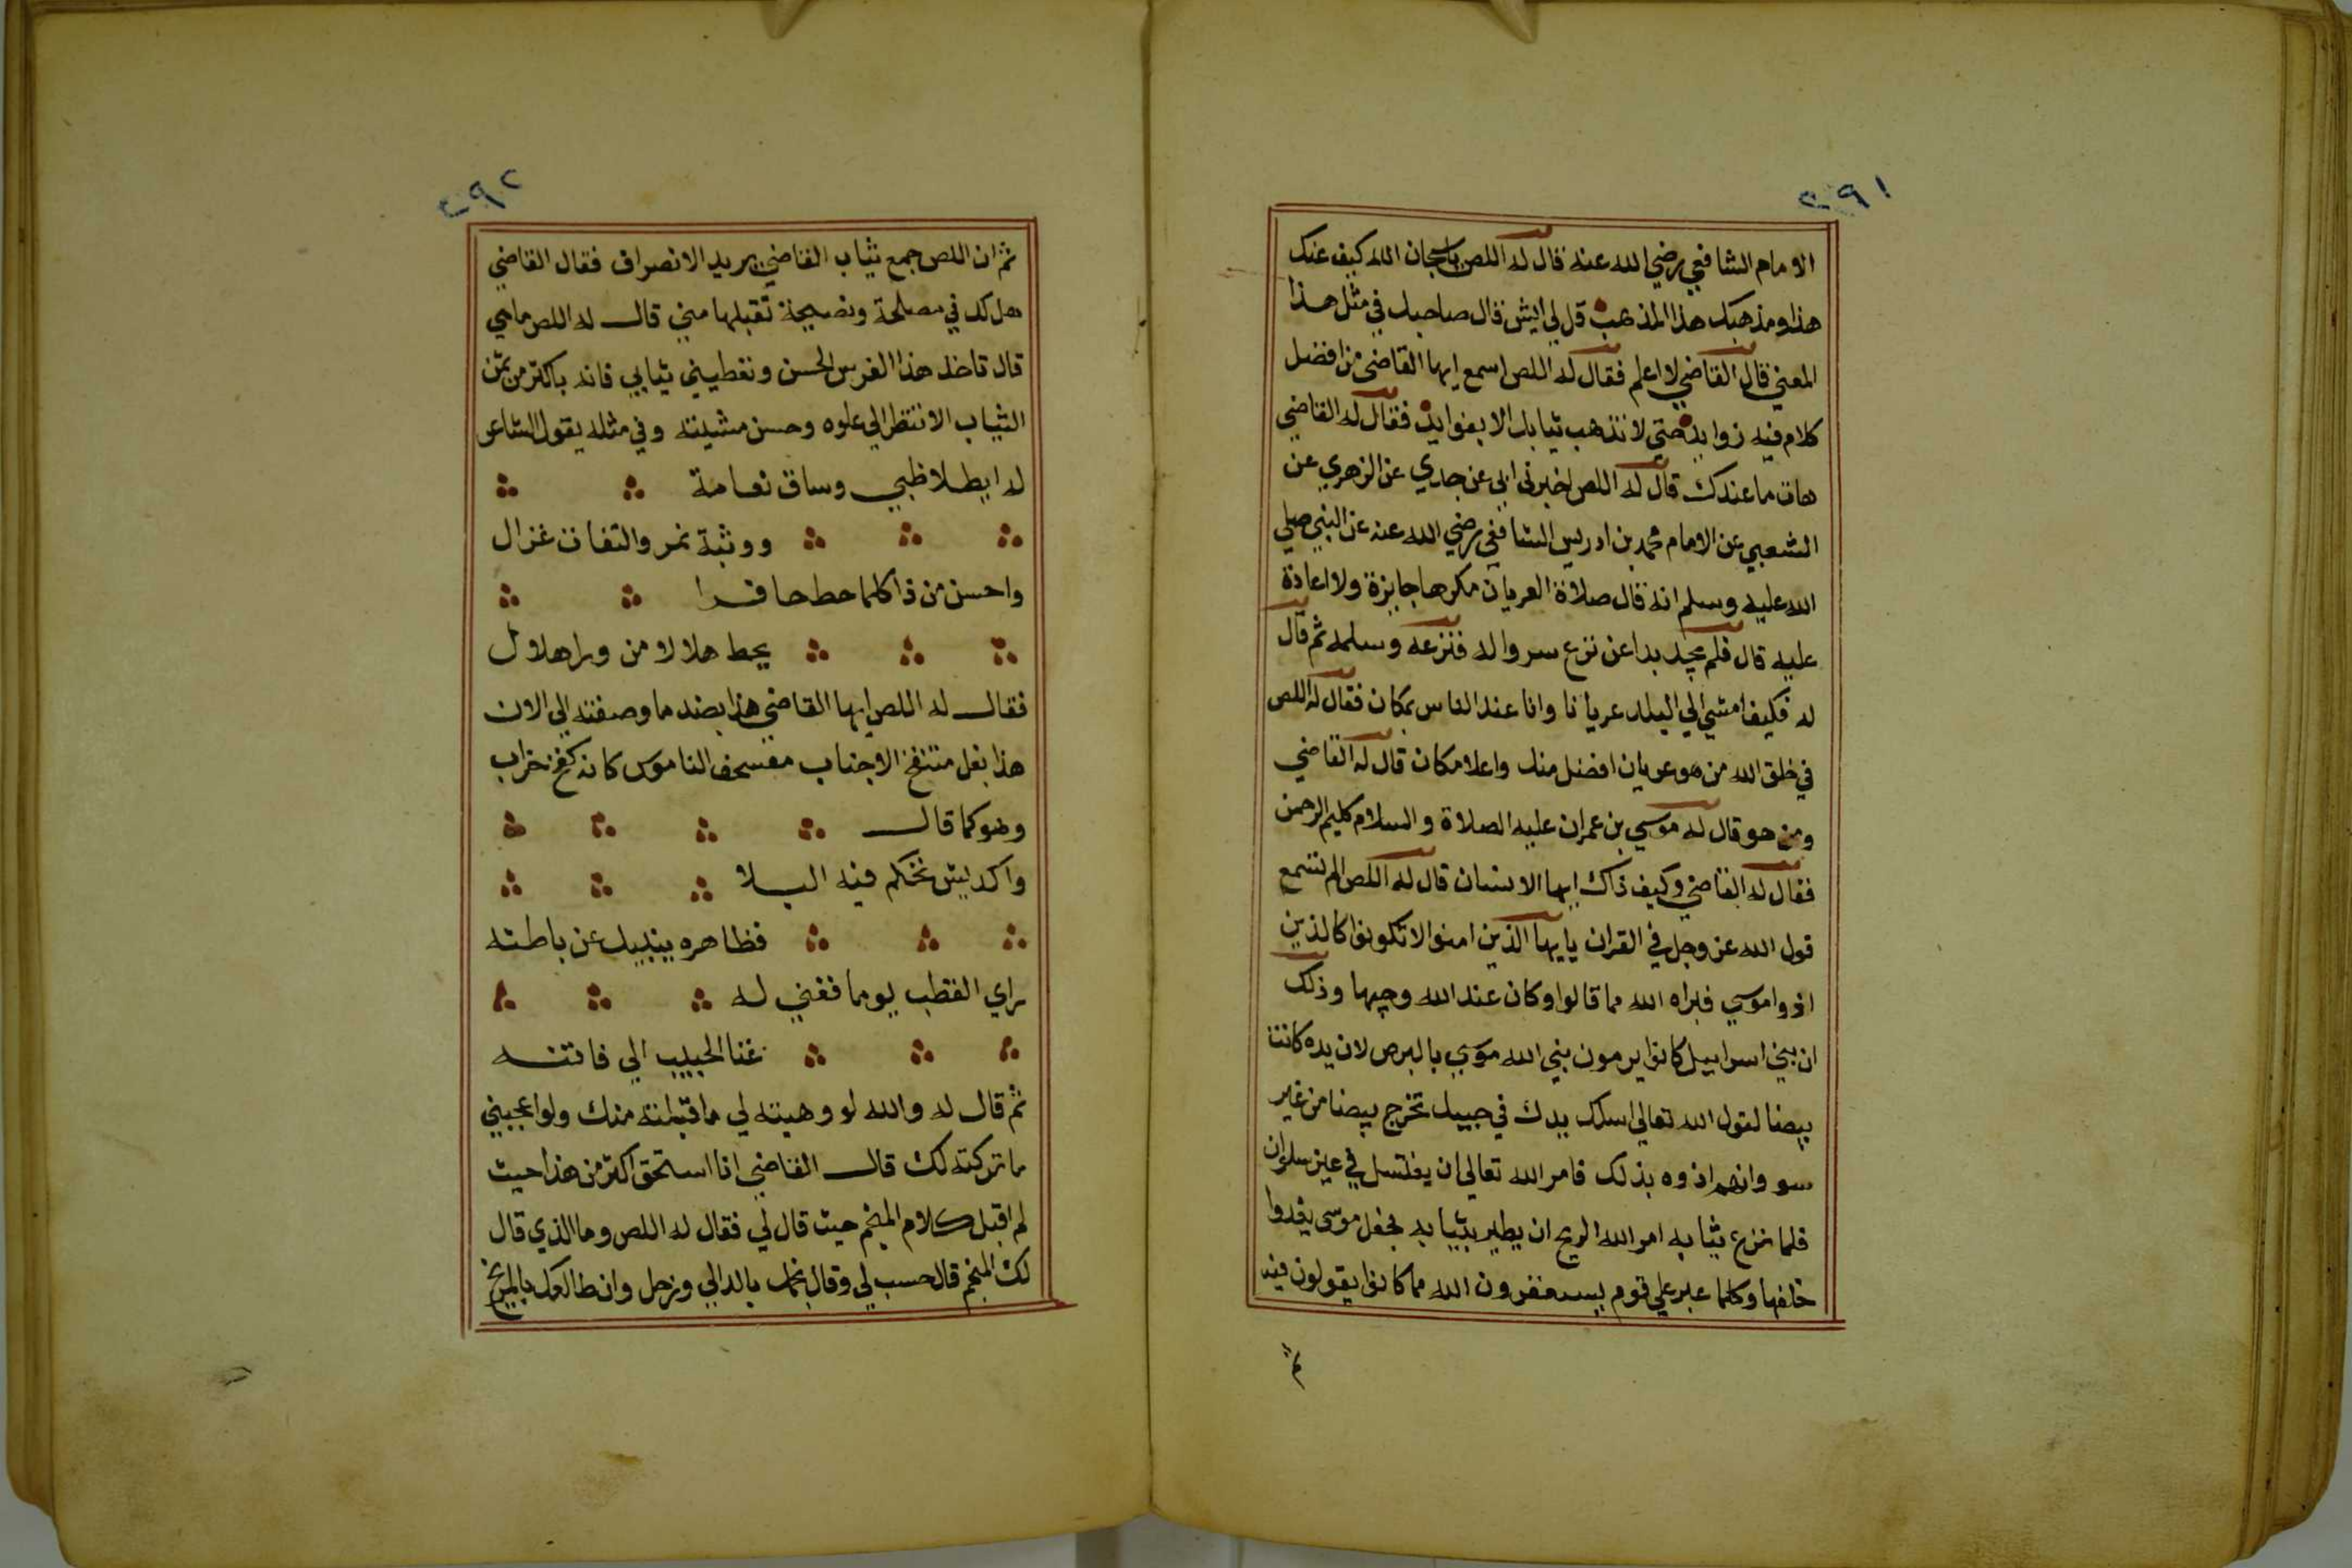 ٢٩١
الامام الشافعي رضي الله عنه قال له اللص ياسبحان الله كيف عنك
هذا ومذهبك هذا المذهب قل لي ايش قال صاحبك في مثل هذا
المعني قال القاضي لا اعلم فقال له اللص اسمع ايها القاضي من افضل
كلام فيه زوايد حتي لا تذهب ثيابك الا بفوايد فقال له القاضي
هات ما عندك قال له اللص اخبرني ابي عن جدي عن الزهري عن
الشعبي عن الامام محمد بن ادريس الشافعي رضي الله عنه عن النبي صلي
الله عليه وسلم انه قال صلاة العريان مكرها جايزة ولا اعادة
عليه قال فلم يجد بدا عن نزع سرواله فنزعه وسلمه ثم قال
له فكيف امشي الي البلد عريانا وانا عند الناس بمكان فقال له اللص
في خلق الله من هو عريان افضل منك واعلا مكان قال له القاضي
ومن هو قال له موسي بن عمران عليه الصلاة والسلام كليم الرحمن
فقال له القاضي وكيف ذاك ايها الانسان قال له اللص الم تسمع
قول الله عز وجل في القران يايها الذين امنوا لا تكونوا كالذين
اذوا موسي فبراه الله مما قالوا وكان عند الله وجيها وذلك
ان بني اسراييل كانوا يرمون بني الله موسي بالبرص لان يده كانت
بيضا لقول الله تعالي اسلك يدك في جيبك تخرج بيضا من غير
سو وانهم اذوه بذلك فامر الله تعالي ان يغتسل في عين سلوان
فلما نزع ثيابه امر الله الريح ان يطير بثيابه فجعل موسي يغدوا
خلفها وكلما عبر علي قوم يستغفرون الله مما كانوا يقولون فيه
ثم
٢٩٢
ثم ان اللص جمع ثياب القاضي يريد الانصراف فقال القاضي
هل لك في مصلحة ونصيحة تقبلها مني قال له اللص ما هي
قال تاخذ هذا الفرس الحسن وتعطيني ثيابي فانه باكثر من ثمن
الثياب الا تنظر الي علوه وحسن مشيته وفي مثله يقول الشاعر
له ايطلا ظبي وساق نعامة
ووثبة نمر والتفات غزال
واحسن من ذا كلما حط حافرا
يحط هلالا من ورا هلال
فقال له اللص ايها القاضي هذا بضد ما وصفته الي الان
هذا بغل منتفخ الاجناب مفسحف الناموس كانه كفر خراب
وهو كما قال
واكديش تحكم فيه البلا
فظاهره ينبيك عن باطنه
راي القطب يوما فغني له
غنا الحبيب الي فاتنه
ثم قال له والله لو وهبته لي ما قبلته منك ولو اعجبني
ما تركته لك قال القاضي انا استحق اكثر من هذا حيث
لم اقبل كلام المنجم حيث قال لي فقال له اللص وما الذي قال
لك المنجم قال حسب لي وقال نجمك بالدالي وزحل وان طالعك بالمريخ